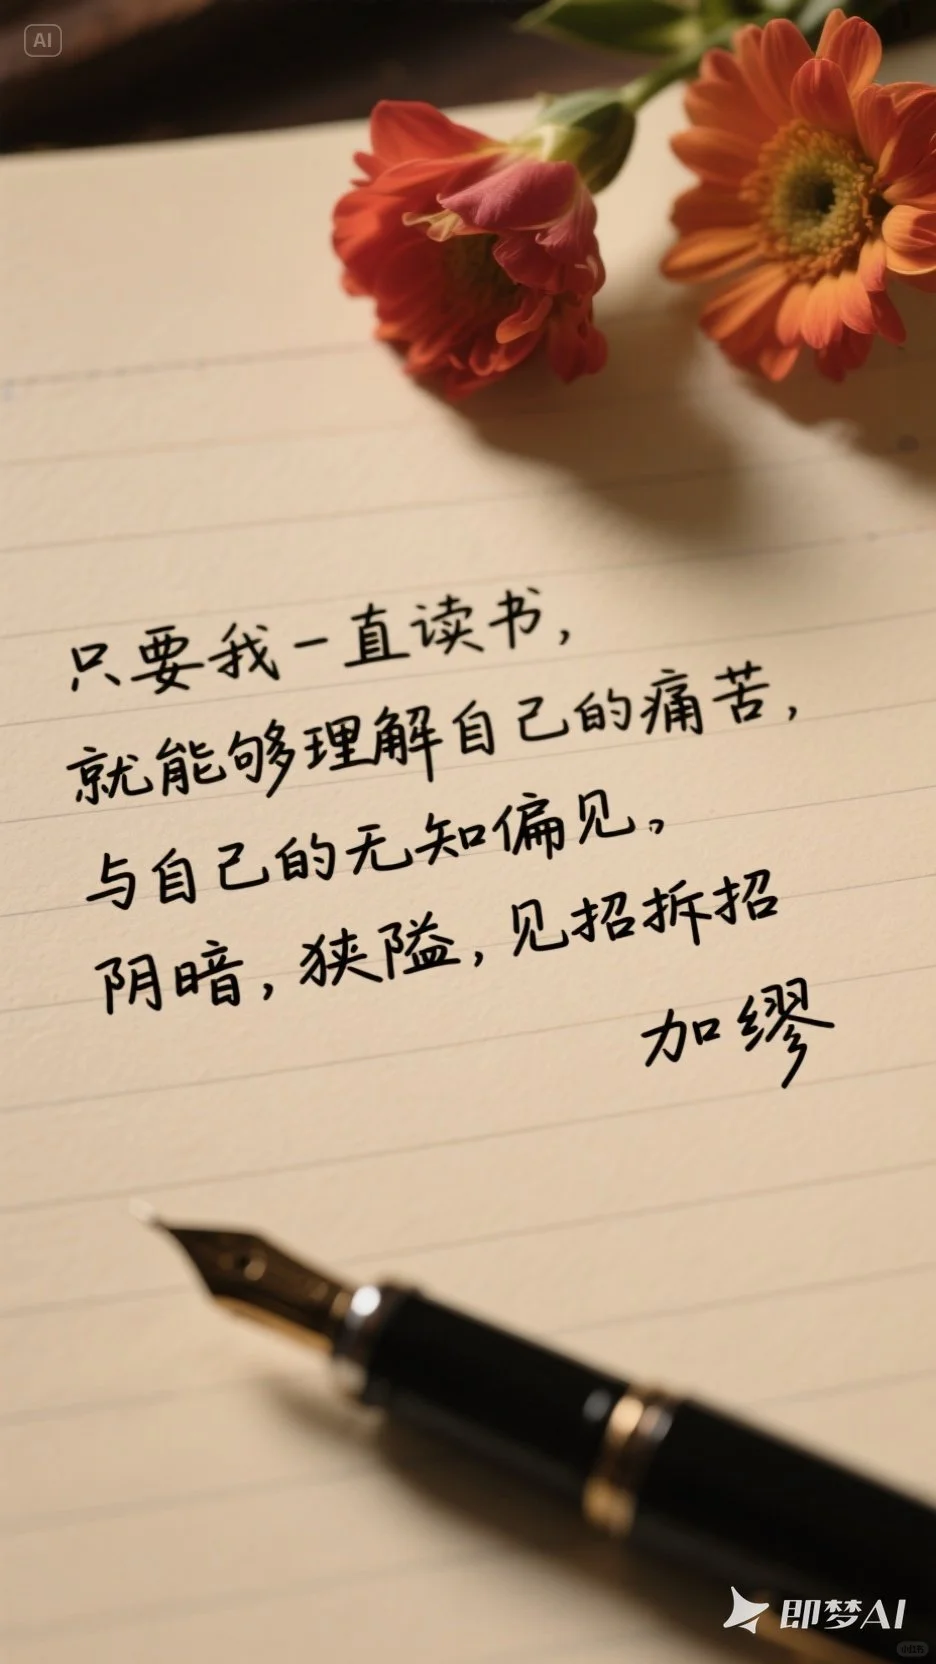 AI
只要我一直读书，
就能够理解自己的痛苦，
与自己的无知偏见。
阴暗，狭隘，见招拆招
加缪
即梦AI
小红书